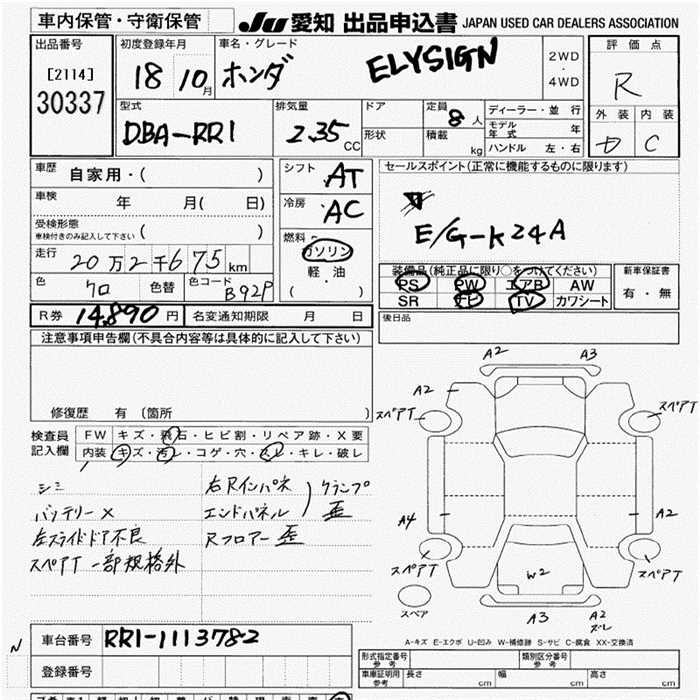 車内保管・守衛保管
JU 愛知 出品申込書 JAPAN USED CAR DEALERS ASSOCIATION
出品番号
[2114]
30337
初度登録年月
18 10月
車名・グレード
ホンダ ELYSIGN
2WD
・
4WD
評価点
R
外装 内装
C
型式
DBA-RR1
排気量
2.35 CC
ドア
形状
定員
8人
積載 kg
ディーラー・並行
モデル年式 年
ハンドル 左・右
車歴 自家用・( )
車検 年 月( 日)
受検形態
車検付きのみ記入して下さい ( )
走行 20万2千675 km
色 クロ 色替 色コード B92P
シフト AT
冷房 AC
燃料
ガソリン
軽油
( )
セールスポイント(正常に機能するものに限ります)
E/G-K24A
装備品(純正品に限り○をつけてください)
PS PW エアB AW
SR ナビ TV カワシート
新車保証書
有・無
R券 14,890円 名変通知期限 月 日
後日品
注意事項申告欄(不具合内容等は具体的に記入して下さい)
修復歴 有 (箇所 )
検査員
記入欄
FW キズ・飛石・ヒビ割・リペア跡・X要
内装 キズ・汚レ・コゲ・穴・スレ・キレ・破レ
シミ
バッテリーX
左スライドドア不良
スペアT 一部規格外
右Rインパネ
エンドパネル
クランプ
歪
Rフロアー歪
A2 A3
A2
スペアT
スペアT
A4
A2
スペアT
スペアT
W2
スペア
A3
A2
ズレ
A-キズ E-エクボ U-凹み W-補修跡 S-サビ C-腐食 XX-交換済
N
車台番号 RR1-1113782
登録番号
形式指定番号
参考
類別区分番号
参考
車庫証明用
参考
長さ cm 幅 cm 高さ cm